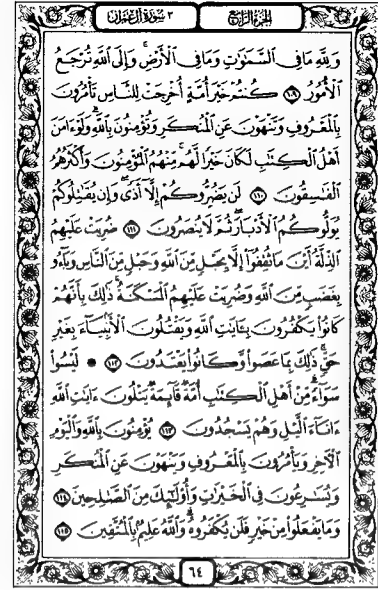 ٣ سورة آل عمران
الجزء الرابع
وَلِلَّهِ مَا فِي السَّمَٰوَٰتِ وَمَا فِي الْأَرْضِ وَإِلَى اللَّهِ تُرْجَعُ
الْأُمُورُ ١٠٩ كُنتُمْ خَيْرَ أُمَّةٍ أُخْرِجَتْ لِلنَّاسِ تَأْمُرُونَ
بِالْمَعْرُوفِ وَتَنْهَوْنَ عَنِ الْمُنكَرِ وَتُؤْمِنُونَ بِاللَّهِ وَلَوْ ءَامَنَ
أَهْلُ الْكِتَٰبِ لَكَانَ خَيْرًا لَّهُم مِّنْهُمُ الْمُؤْمِنُونَ وَأَكْثَرُهُمُ
الْفَٰسِقُونَ ١١٠ لَن يَضُرُّوكُمْ إِلَّا أَذًى وَإِن يُقَٰتِلُوكُمْ
يُوَلُّوكُمُ الْأَدْبَارَ ثُمَّ لَا يُنصَرُونَ ١١١ ضُرِبَتْ عَلَيْهِمُ
الذِّلَّةُ أَيْنَ مَا ثُقِفُوا إِلَّا بِحَبْلٍ مِّنَ اللَّهِ وَحَبْلٍ مِّنَ النَّاسِ وَبَاءُو
بِغَضَبٍ مِّنَ اللَّهِ وَضُرِبَتْ عَلَيْهِمُ الْمَسْكَنَةُ ذَٰلِكَ بِأَنَّهُمْ
كَانُوا يَكْفُرُونَ بِـَٔايَٰتِ اللَّهِ وَيَقْتُلُونَ الْأَنۢبِيَاءَ بِغَيْرِ
حَقٍّ ذَٰلِكَ بِمَا عَصَوا وَّكَانُوا يَعْتَدُونَ ١١٢ لَيْسُوا
سَوَاءً مِّنْ أَهْلِ الْكِتَٰبِ أُمَّةٌ قَائِمَةٌ يَتْلُونَ ءَايَٰتِ اللَّهِ
ءَانَاءَ الَّيْلِ وَهُمْ يَسْجُدُونَ ١١٣ يُؤْمِنُونَ بِاللَّهِ وَالْيَوْمِ
الْءَاخِرِ وَيَأْمُرُونَ بِالْمَعْرُوفِ وَيَنْهَوْنَ عَنِ الْمُنكَرِ
وَيُسَٰرِعُونَ فِي الْخَيْرَٰتِ وَأُولَٰئِكَ مِنَ الصَّٰلِحِينَ ١١٤
وَمَا يَفْعَلُوا مِنْ خَيْرٍ فَلَن يُكْفَرُوهُ وَاللَّهُ عَلِيمٌۢ بِالْمُتَّقِينَ ١١٥
٦٤